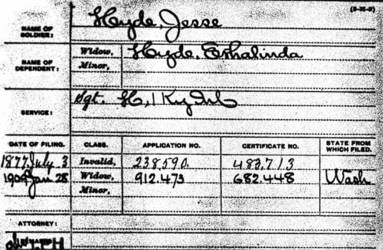 (3-262)
NAME OF SOLDIER: Hyde, Jesse
NAME OF DEPENDENT: Widow, Hyde, Eshalinda
Minor,
SERVICE: Sgt. H, 1 Ky Inf
DATE OF FILING. CLASS. APPLICATION NO. CERTIFICATE NO. STATE FROM WHICH FILED.
1877, July 3 Invalid, 238,590. 483,713
Jan 28 Widow, 912.473 682.448 Wash
Minor,
ATTORNEY: